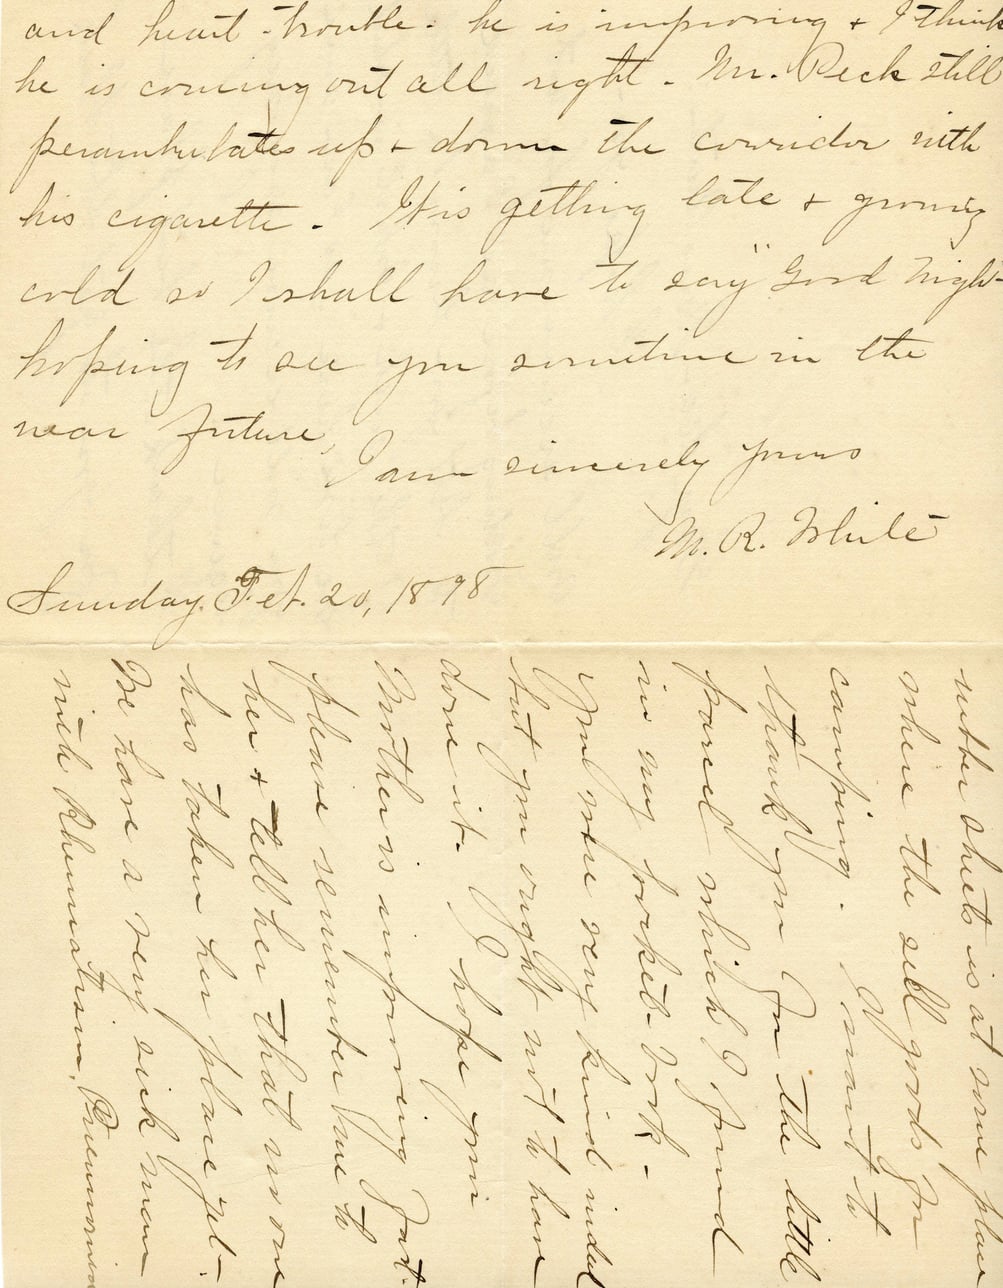 and heart-trouble. he is improving & I think
he is coming out all right - Mr. Peck still
perambulates up & down the corridor with
his cigarette. It is getting late & growing
cold so I shall have to say "Good Night-
hoping to see you sometime in the
near future,
I am sincerely yours
M. R. White
Sunday. Feb. 20, 1898
rubber sheets is at some place
where the sell goods for
camping. I want to
thank you for the little
parcel which I found
in my pocket-book -
You were very kind indeed
but you ought not to have
done it. I hope your
Mother is improving fast.
please remember me to
her & tell her that no one
has taken her place yet-
We have a very sick man
with Rheumatism, Pneumonia